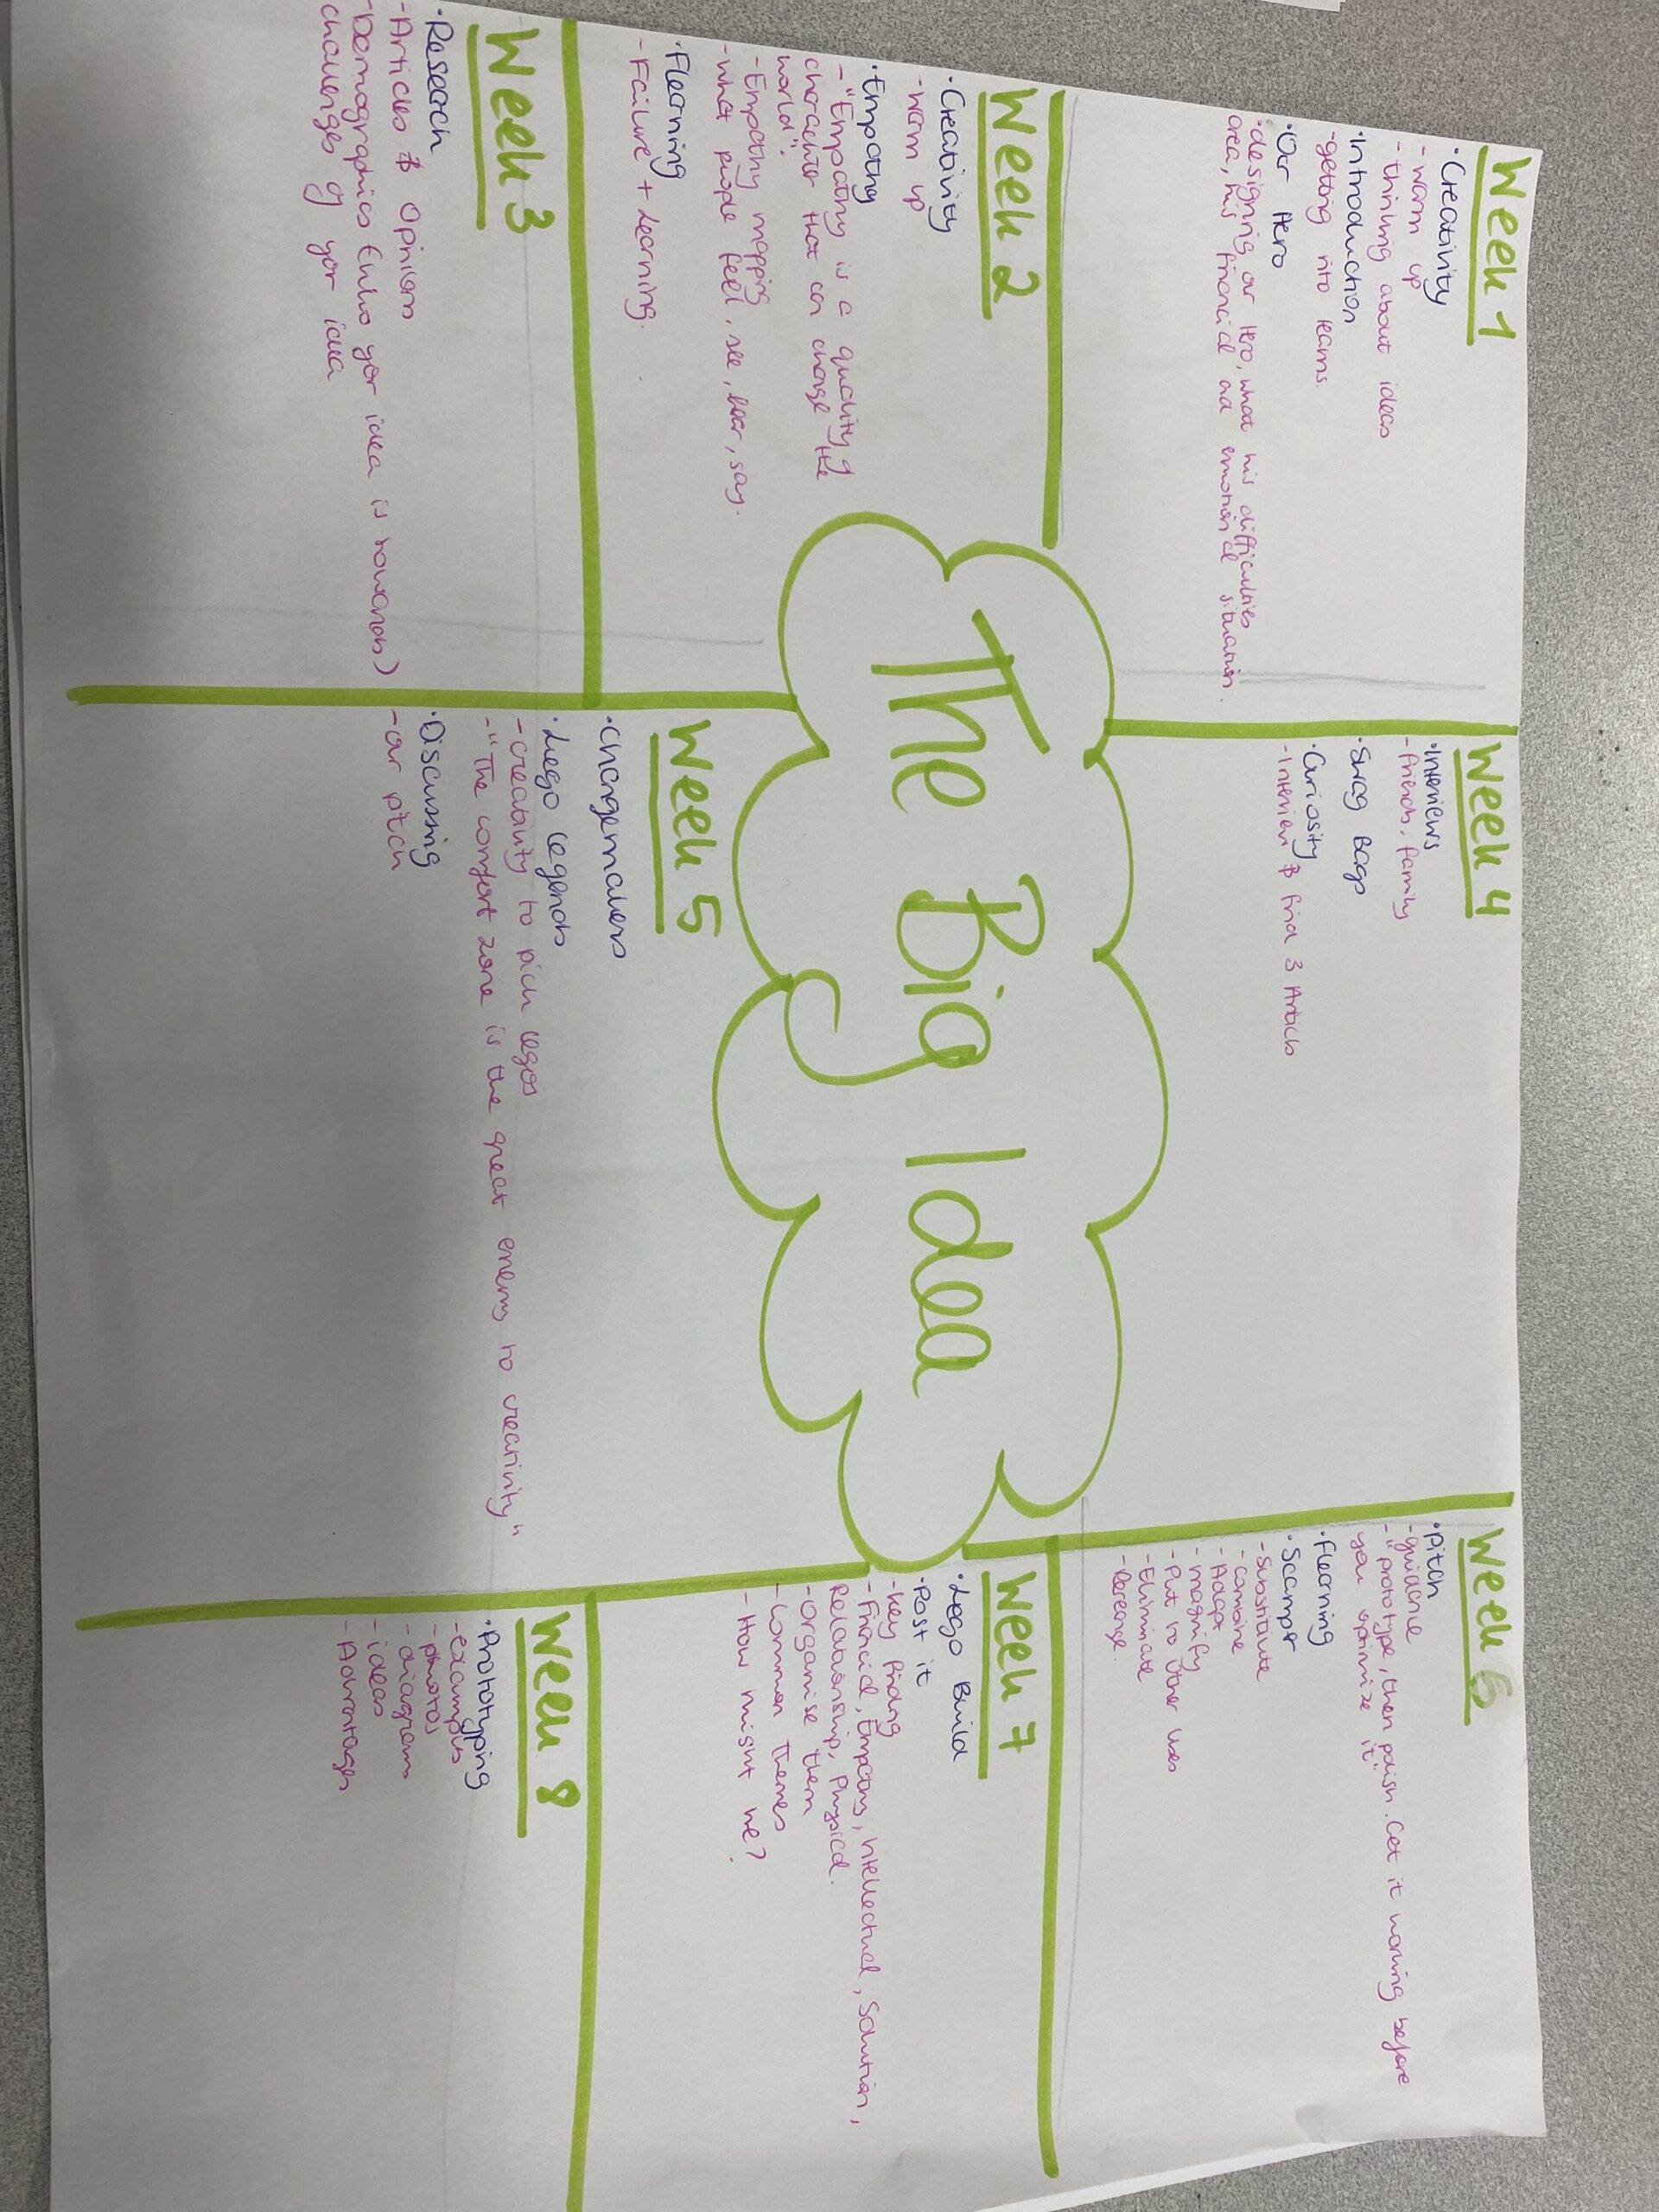 Week 1
·Creativity
- warm up
- thinking about ideas
·Introduction
-getting into teams.
·Our Hero
·designing our Hero, what his difficulties
area, his financial and emotional situation.
Week 2
·Creativity
-warm up
·Empathy
- "Empathy is a quality of
character that can change the
world".
-Empathy mapping
-what people feel, see, hear, say.
·Flearning
-Failure + Learning.
Week 3
·Research
-Articles & Opinions
-Demographics (who your idea is towards)
challenges of your idea
The Big Idea
Week 4
·Interviews
-friends, family
·Swag Bags
·Curiosity
-Interview & find 3 Articles
Week 5
·Changemakers
·Lego legends
-creativity to pick legos
-"The comfort zone is the great enemy to creativity"
·Discussing
-our pitch
Week 6
·Pitch
-guidene
-"prototype, then polish. Get it working before
you optimize it"
·Flearning
·Scamper
-Substitute
-combine
-Adapt
-magnify
-Put to other uses
-Eliminate
-Rearrange.
Week 7
·Lego Build
·Post it
-Key finding
-Financial, Empathy, Intellectual, Solution,
Relationship, Physical.
-organise them
-Common Themes
-How might we?
Week 8
·Prototyping
-examples
-photos
-diagrams
-ideas
-Advantages